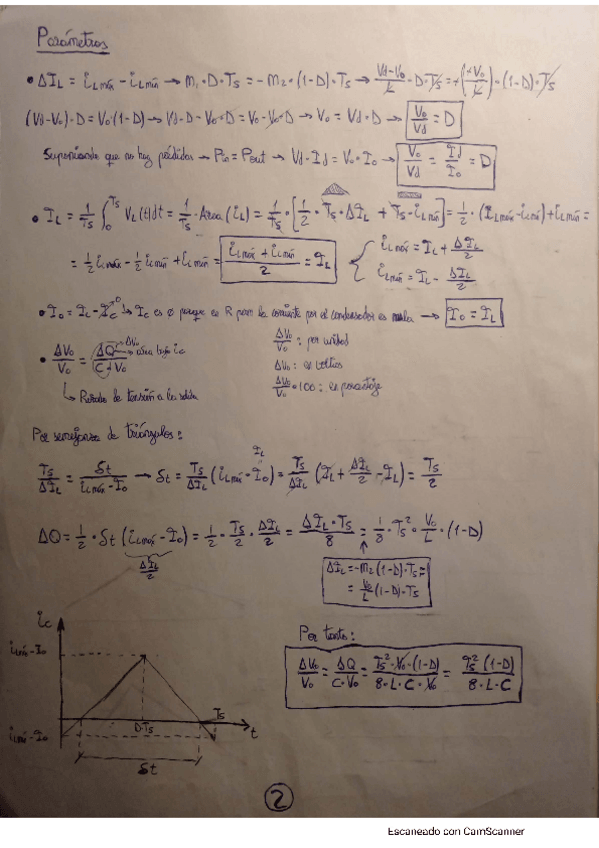 Parámetros
• ΔI_L = i_Lmáx − i_Lmín → m₁·D·Ts = −m₂·(1-D)·Ts → (Vd-Vo)/L · D·Ts = +(+Vo/L)·(1-D)·Ts
(Vd-Vo)·D = Vo·(1-D) → Vd·D - Vo·D = Vo - Vo·D → Vo = Vd·D → Vo/Vd = D
Suponiendo que no hay pérdidas → Pin = Pout → Vd·Id = Vo·Io → Vo/Vd = Id/Io = D
• I_L = 1/Ts ∫₀^Ts V_L(t)dt = 1/Ts · Area(i_L) = 1/Ts · [1/2 · Ts·ΔI_L + Ts·i_Lmín] = 1/2·(i_Lmáx - i_Lmín) + i_Lmín =
= 1/2 i_Lmáx - 1/2 i_Lmín + i_Lmín = (i_Lmáx + i_Lmín)/2 = I_L { i_Lmáx = I_L + ΔI_L/2
i_Lmín = I_L - ΔI_L/2
• Io = I_L - I_C⁰ ↳ I_C es ∅ porque en R perm la corriente por el condensador es nula → Io = I_L
• ΔVo/Vo = ΔQ/(C·Vo) → ΔVo → área bajo i_C
ΔVo/Vo : por unidad
ΔVo : en voltios
ΔVo/Vo · 100 : en porcentaje
↳ Rizado de tensión a la salida
Por semejanza de triángulos:
Ts/ΔI_L = δt/(i_Lmáx - Io) → δt = Ts/ΔI_L (i_Lmáx - Io) = Ts/ΔI_L (I_L + ΔI_L/2 - I_L) = Ts/2
I_L
ΔQ = 1/2 · δt (i_Lmáx - Io) = 1/2 · Ts/2 · ΔI_L/2 = ΔI_L·Ts/8 = 1/8 · Ts² · Vo/L · (1-D)
ΔI_L/2
ΔI_L = -m₂(1-D)·Ts =
= Vo/L (1-D)·Ts
Por tanto:
ΔVo/Vo = ΔQ/(C·Vo) = Ts²·Vo·(1-D)/(8·L·C·Vo) = Ts²(1-D)/(8·L·C)
i_C
i_Lmáx-Io
i_Lmín-Io
D·Ts
Ts
t
δt
2
Escaneado con CamScanner